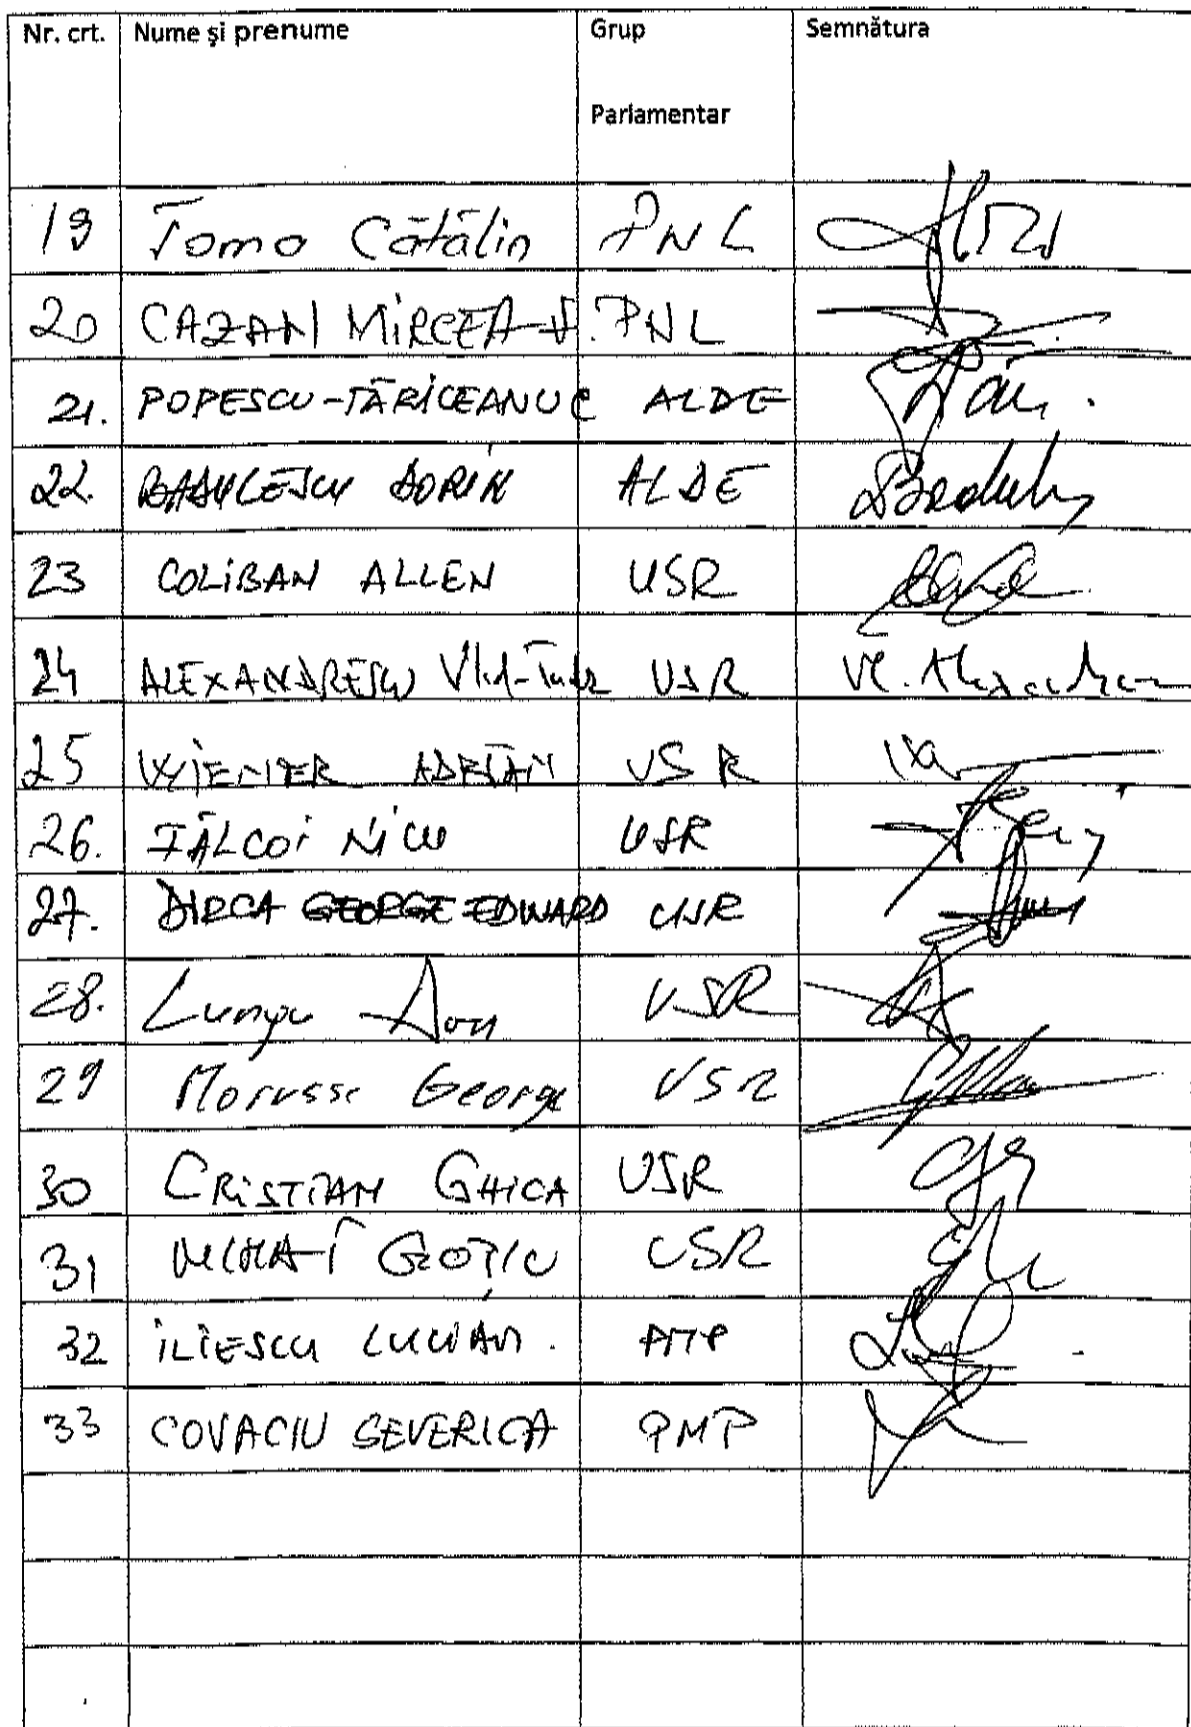 Nr. crt. Nume și prenume Grup Parlamentar Semnătura
19 Toma Cătălin PNL
20 CAZAN MIRCEA-V. PNL
21. POPESCU-TĂRICEANU C ALDE
22. BADULESCU DORIN ALDE
23 COLIBAN ALLEN USR
24 ALEXANDRESCU Vlad-Tudor USR
25 WIENER ADRIAN USR
26. FĂLCOI NICU USR
27. DIRCA GEORGE-EDWARD USR
28. Lungu Dan USR
29 Marussi George USR
30 CRISTIAN GHICA USR
31 MIHAI GOȚIU USR
32 ILIESCU LUCIAN. PMP
33 COVACIU SEVERICA PMP